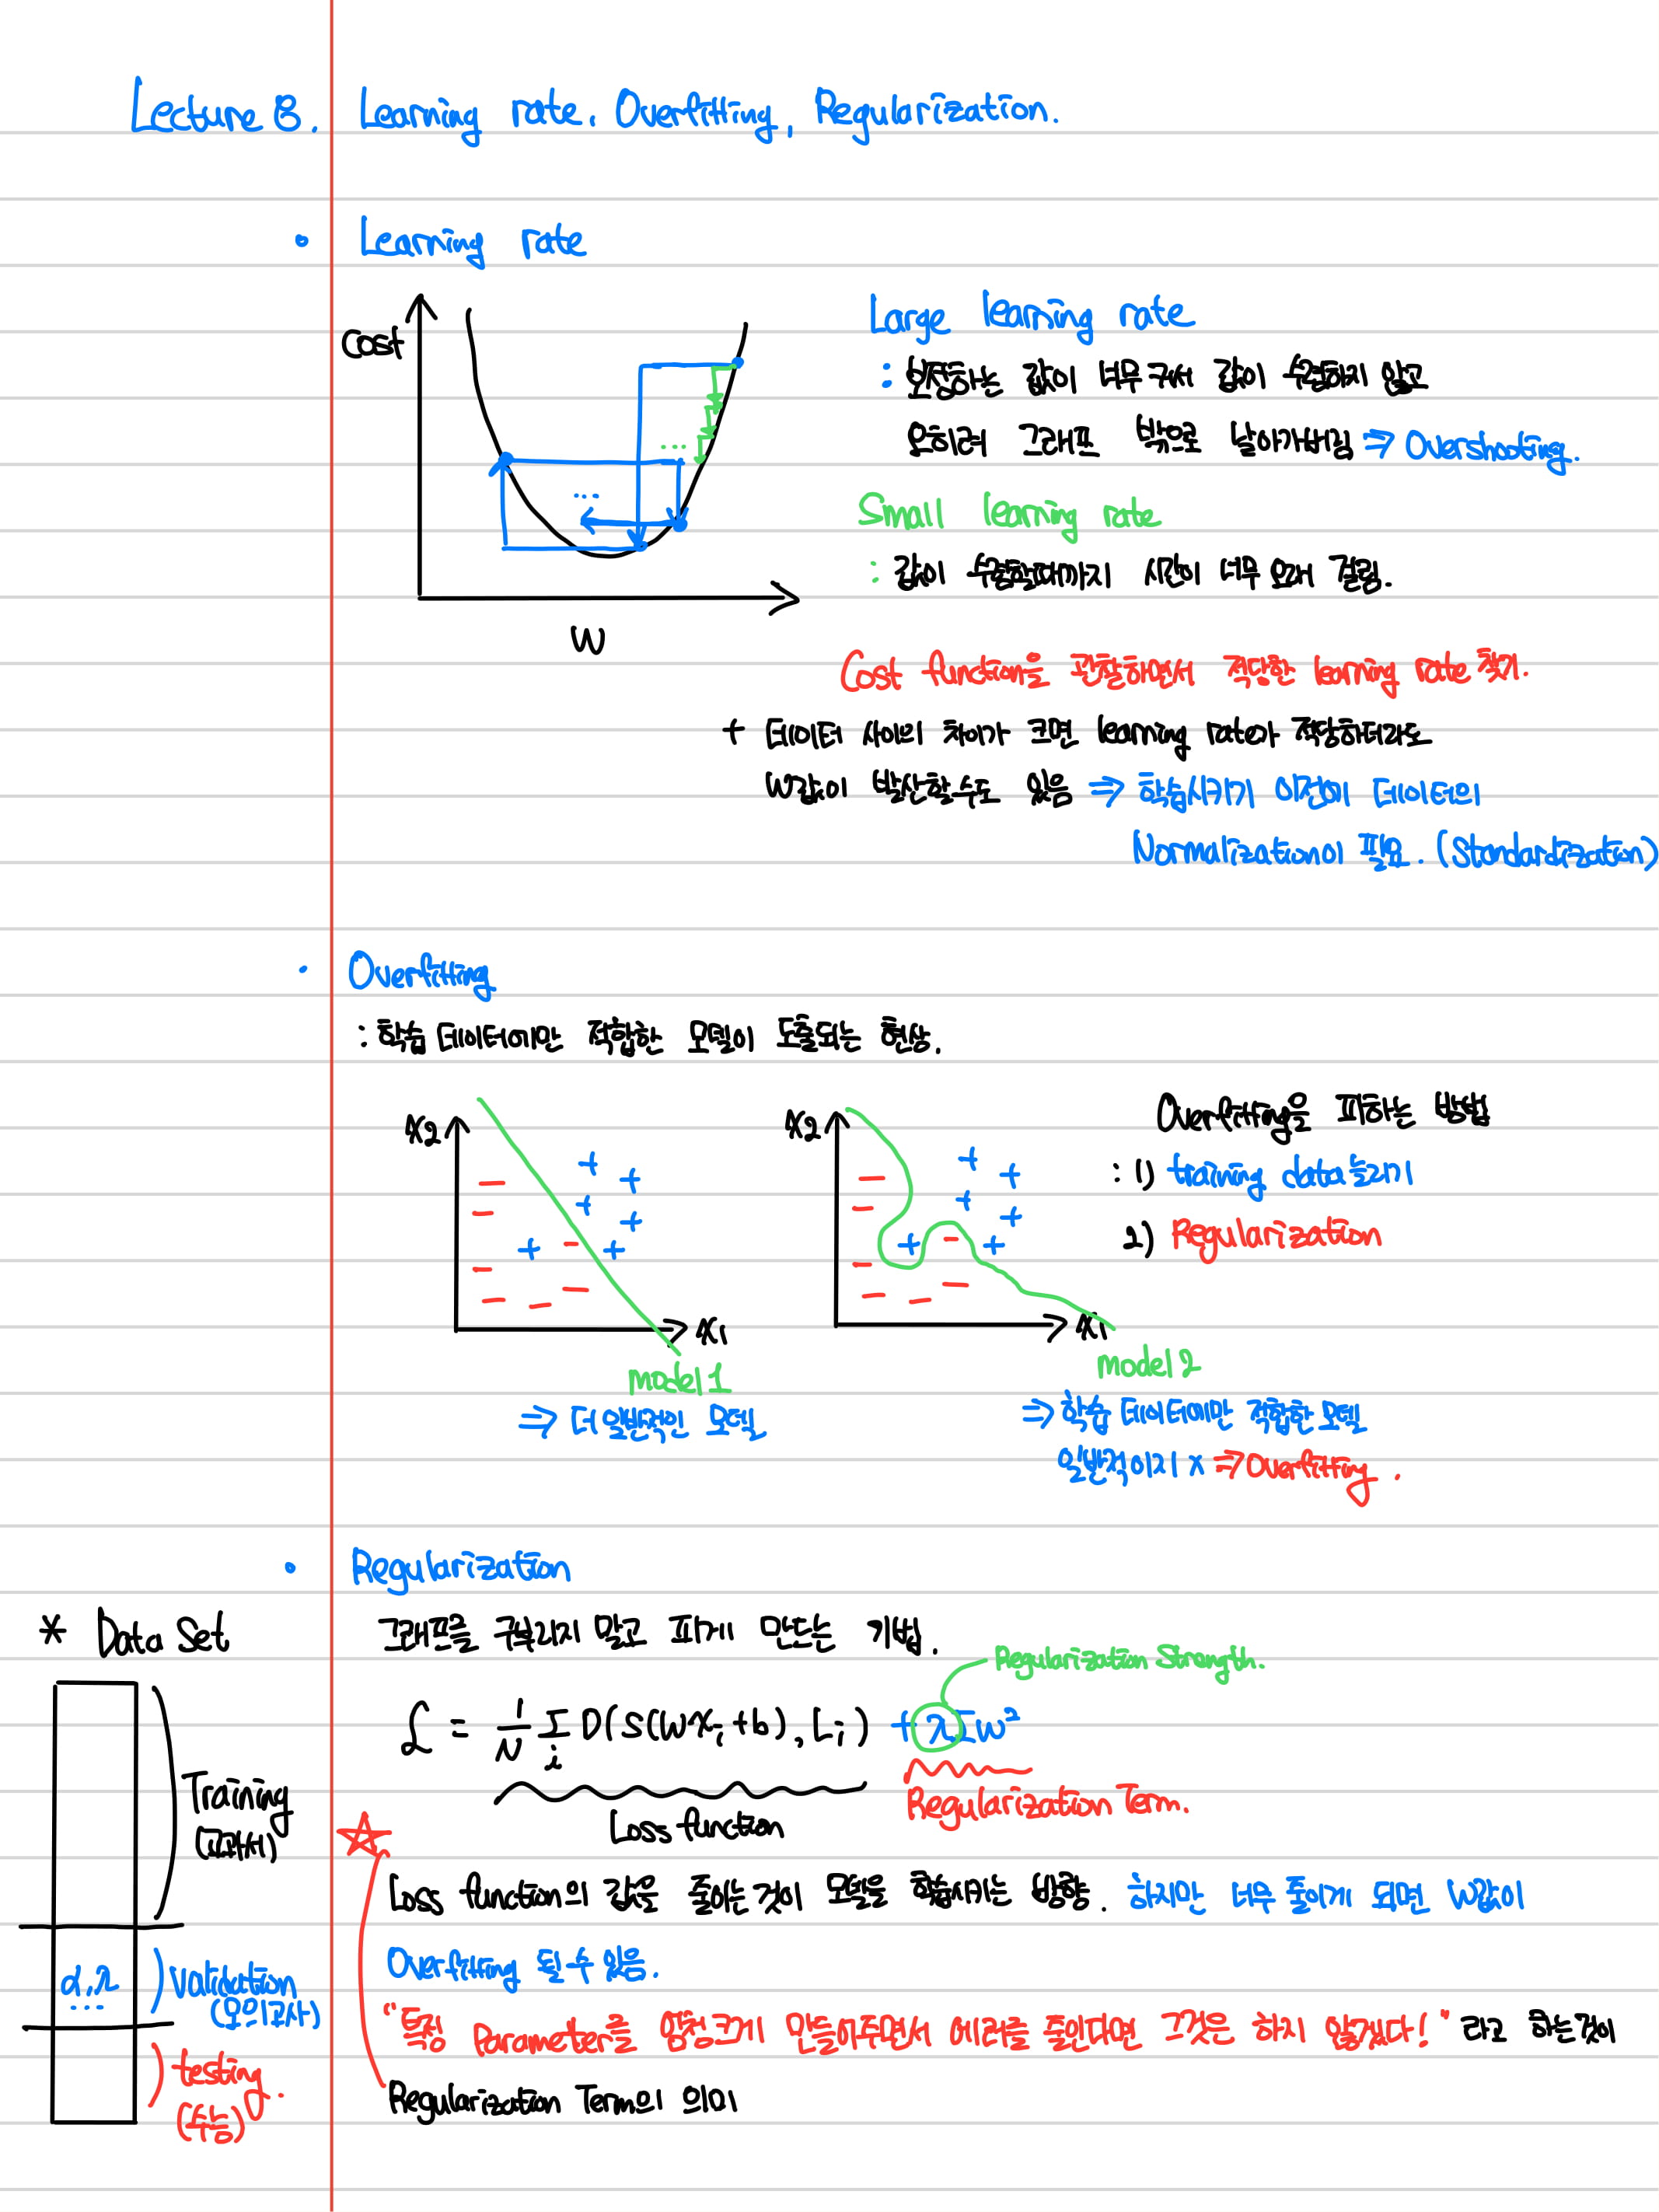 Lecture 8. Learning rate, Overfitting, Regularization.
• Learning rate
Cost
W
...
...
Large learning rate
: 보정하는 값이 너무 커서 값이 수렴하지 않고
오히려 그래프 밖으로 날아가버림 ⇒ Overshooting.
Small learning rate
: 값이 수렴할때까지 시간이 너무 오래 걸림.
Cost function을 관찰하면서 적당한 learning rate 찾기.
+ 데이터 사이의 차이가 크면 learning rate가 적당하더라도
W값이 발산할수도 있음 ⇒ 학습시키기 이전에 데이터의
Normalization이 필요. (Standardization)
• Overfitting
: 학습 데이터에만 적합한 모델이 도출되는 현상.
x2
x1
model 1
⇒ 더 일반적인 모델
x2
x1
model 2
⇒ 학습 데이터에만 적합한 모델
일반적이지 x ⇒ Overfitting.
Overfitting을 피하는 방법
: 1) training data 늘리기
2) Regularization
• Regularization
그래프를 구부리지 말고 펴게 만드는 기법.
Regularization Strength.
ℒ = 1/N Σ_i D(S(WX_i+b), L_i) + λΣW²
Loss function
Regularization Term.
☆
Loss function의 값을 줄이는 것이 모델을 학습시키는 방향. 하지만 너무 줄이게 되면 W값이
Overfitting 될 수 있음.
"특정 Parameter를 엄청 크게 만들어주면서 에러를 줄인다면 그것은 하지 않겠다!" 라고 하는것이
Regularization Term의 의미
* Data Set
Training
(교과서)
α, λ
...
Validation
(모의고사)
testing.
(수능)